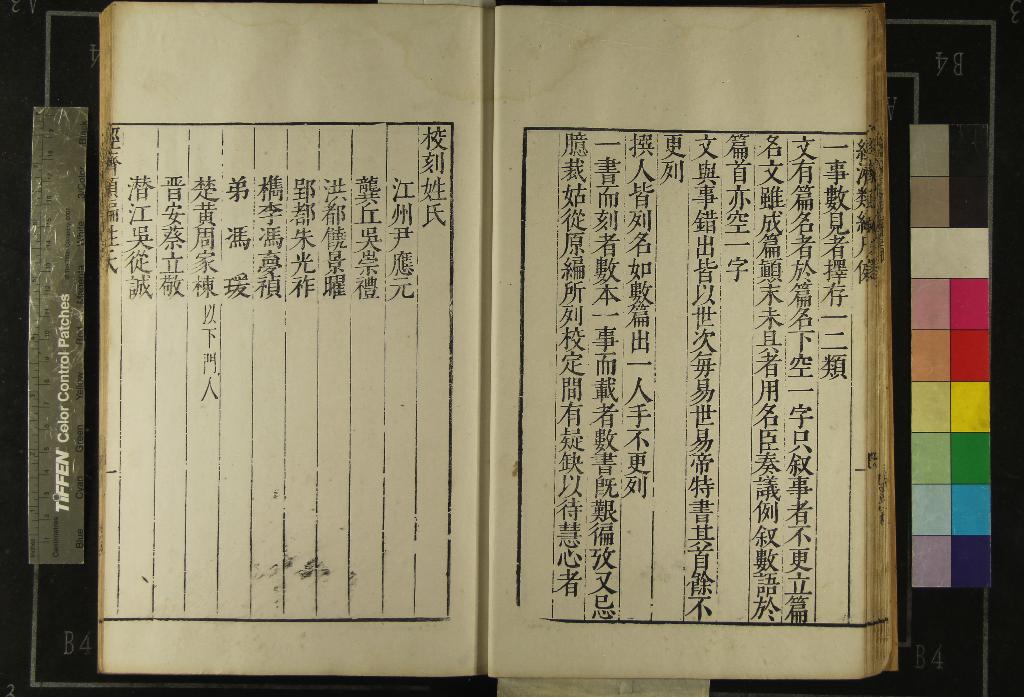 一事數見者擇存一二類
文有篇名者於篇名下空一字只叙事者不更立篇
名文雖成篇顛末未具者用名臣奏議例叙數語於
篇首亦空一字
文與事錯出皆以世次每易世易帝特書其首餘不
更列
撰人皆列名如數篇出一人手不更列
一書而刻者數本一事而載者數書既艱徧攷又忌
臆裁姑從原編所列校定間有疑缺以待慧心者
校刻姓氏
江州尹應元
龔丘吳崇禮
洪都饒景曜
郢都朱光祚
檇李馮夢禎
弟馮瑗
楚黃周家棟以下門人
晋安蔡立敬
潜江吳從誠
經濟類編姓氏
TIFFEN Color Control Patches
B4
B4
B4
B4